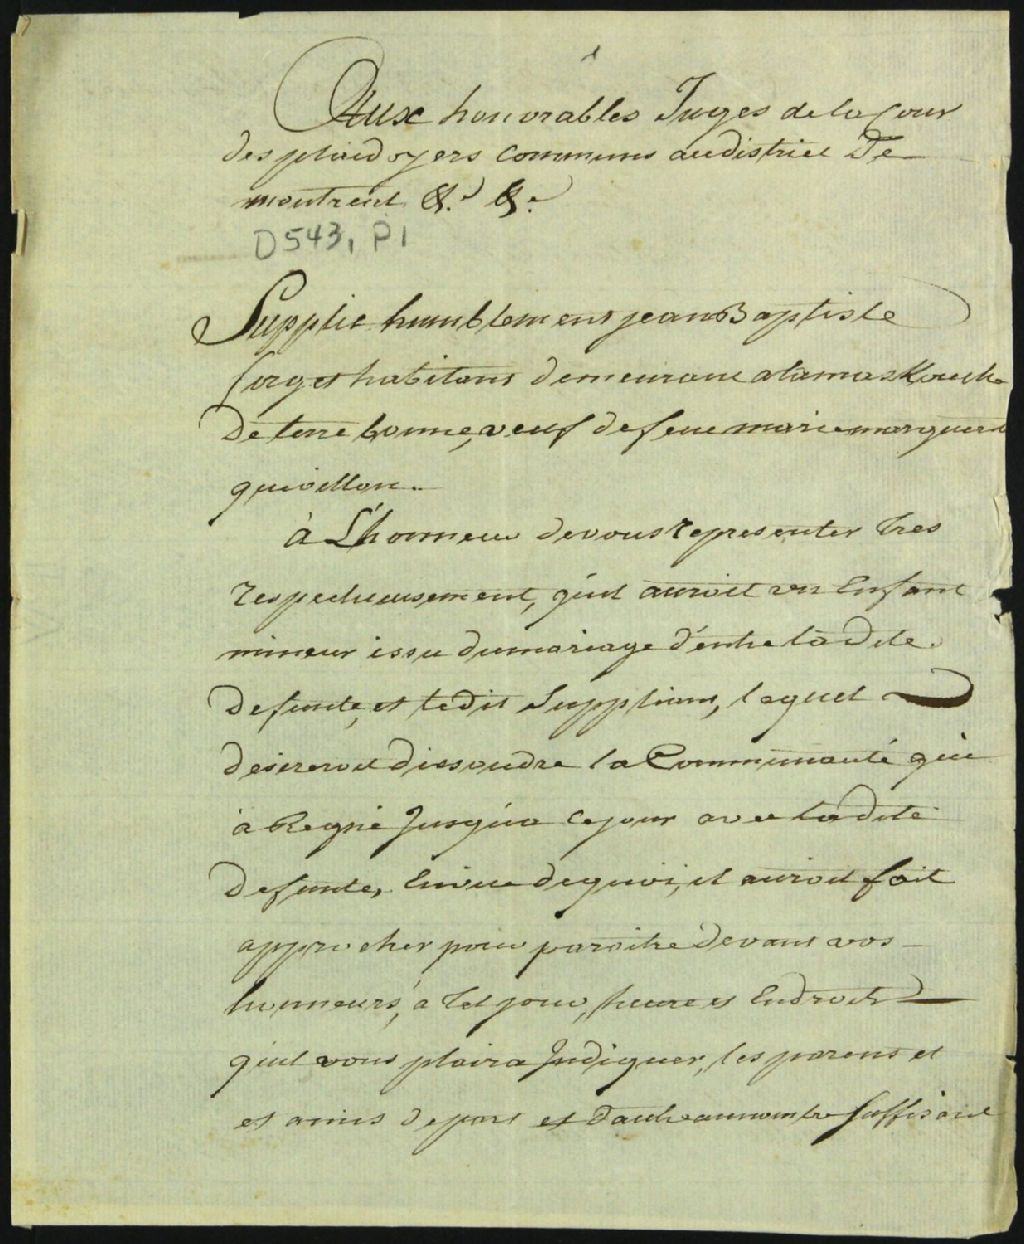 Aux honorables Juges de la Cour
des plaidoyers communs au district De
montreal &.a &.a
D543, P1
Supplie humblement jean Baptiste
forget habitant demeurant a lamaskouche
De terrebonne, veuf de feue marie marguerite
quevillon..
à L'honneur de vous representer Tres
respectueusement, qu'il auroit un Enfant
mineur issu du mariage d'entre la Dite
Defunte, et le dit Suppliant, lequel
désireroit dissoudre la Communauté qui
à Regné Jusqu'a ce jour avec la dite
defunte, En vue de quoi, il auroit fait
approcher pour paroitre devant vos
honneurs, a tel jour, heure et Endroit
qu'il vous plaira Indiquer, les parens et
et amis de part et d'autre au nombre suffisant